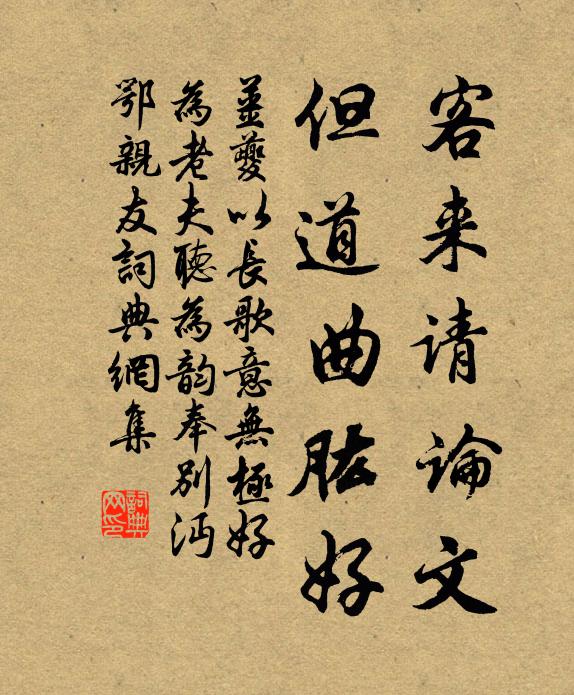 客来请論文
但道曲肱好
姜夔以長歌意無極好
為老夫聽為韵奉別沔
鄂親友詞典網集
詞典网印